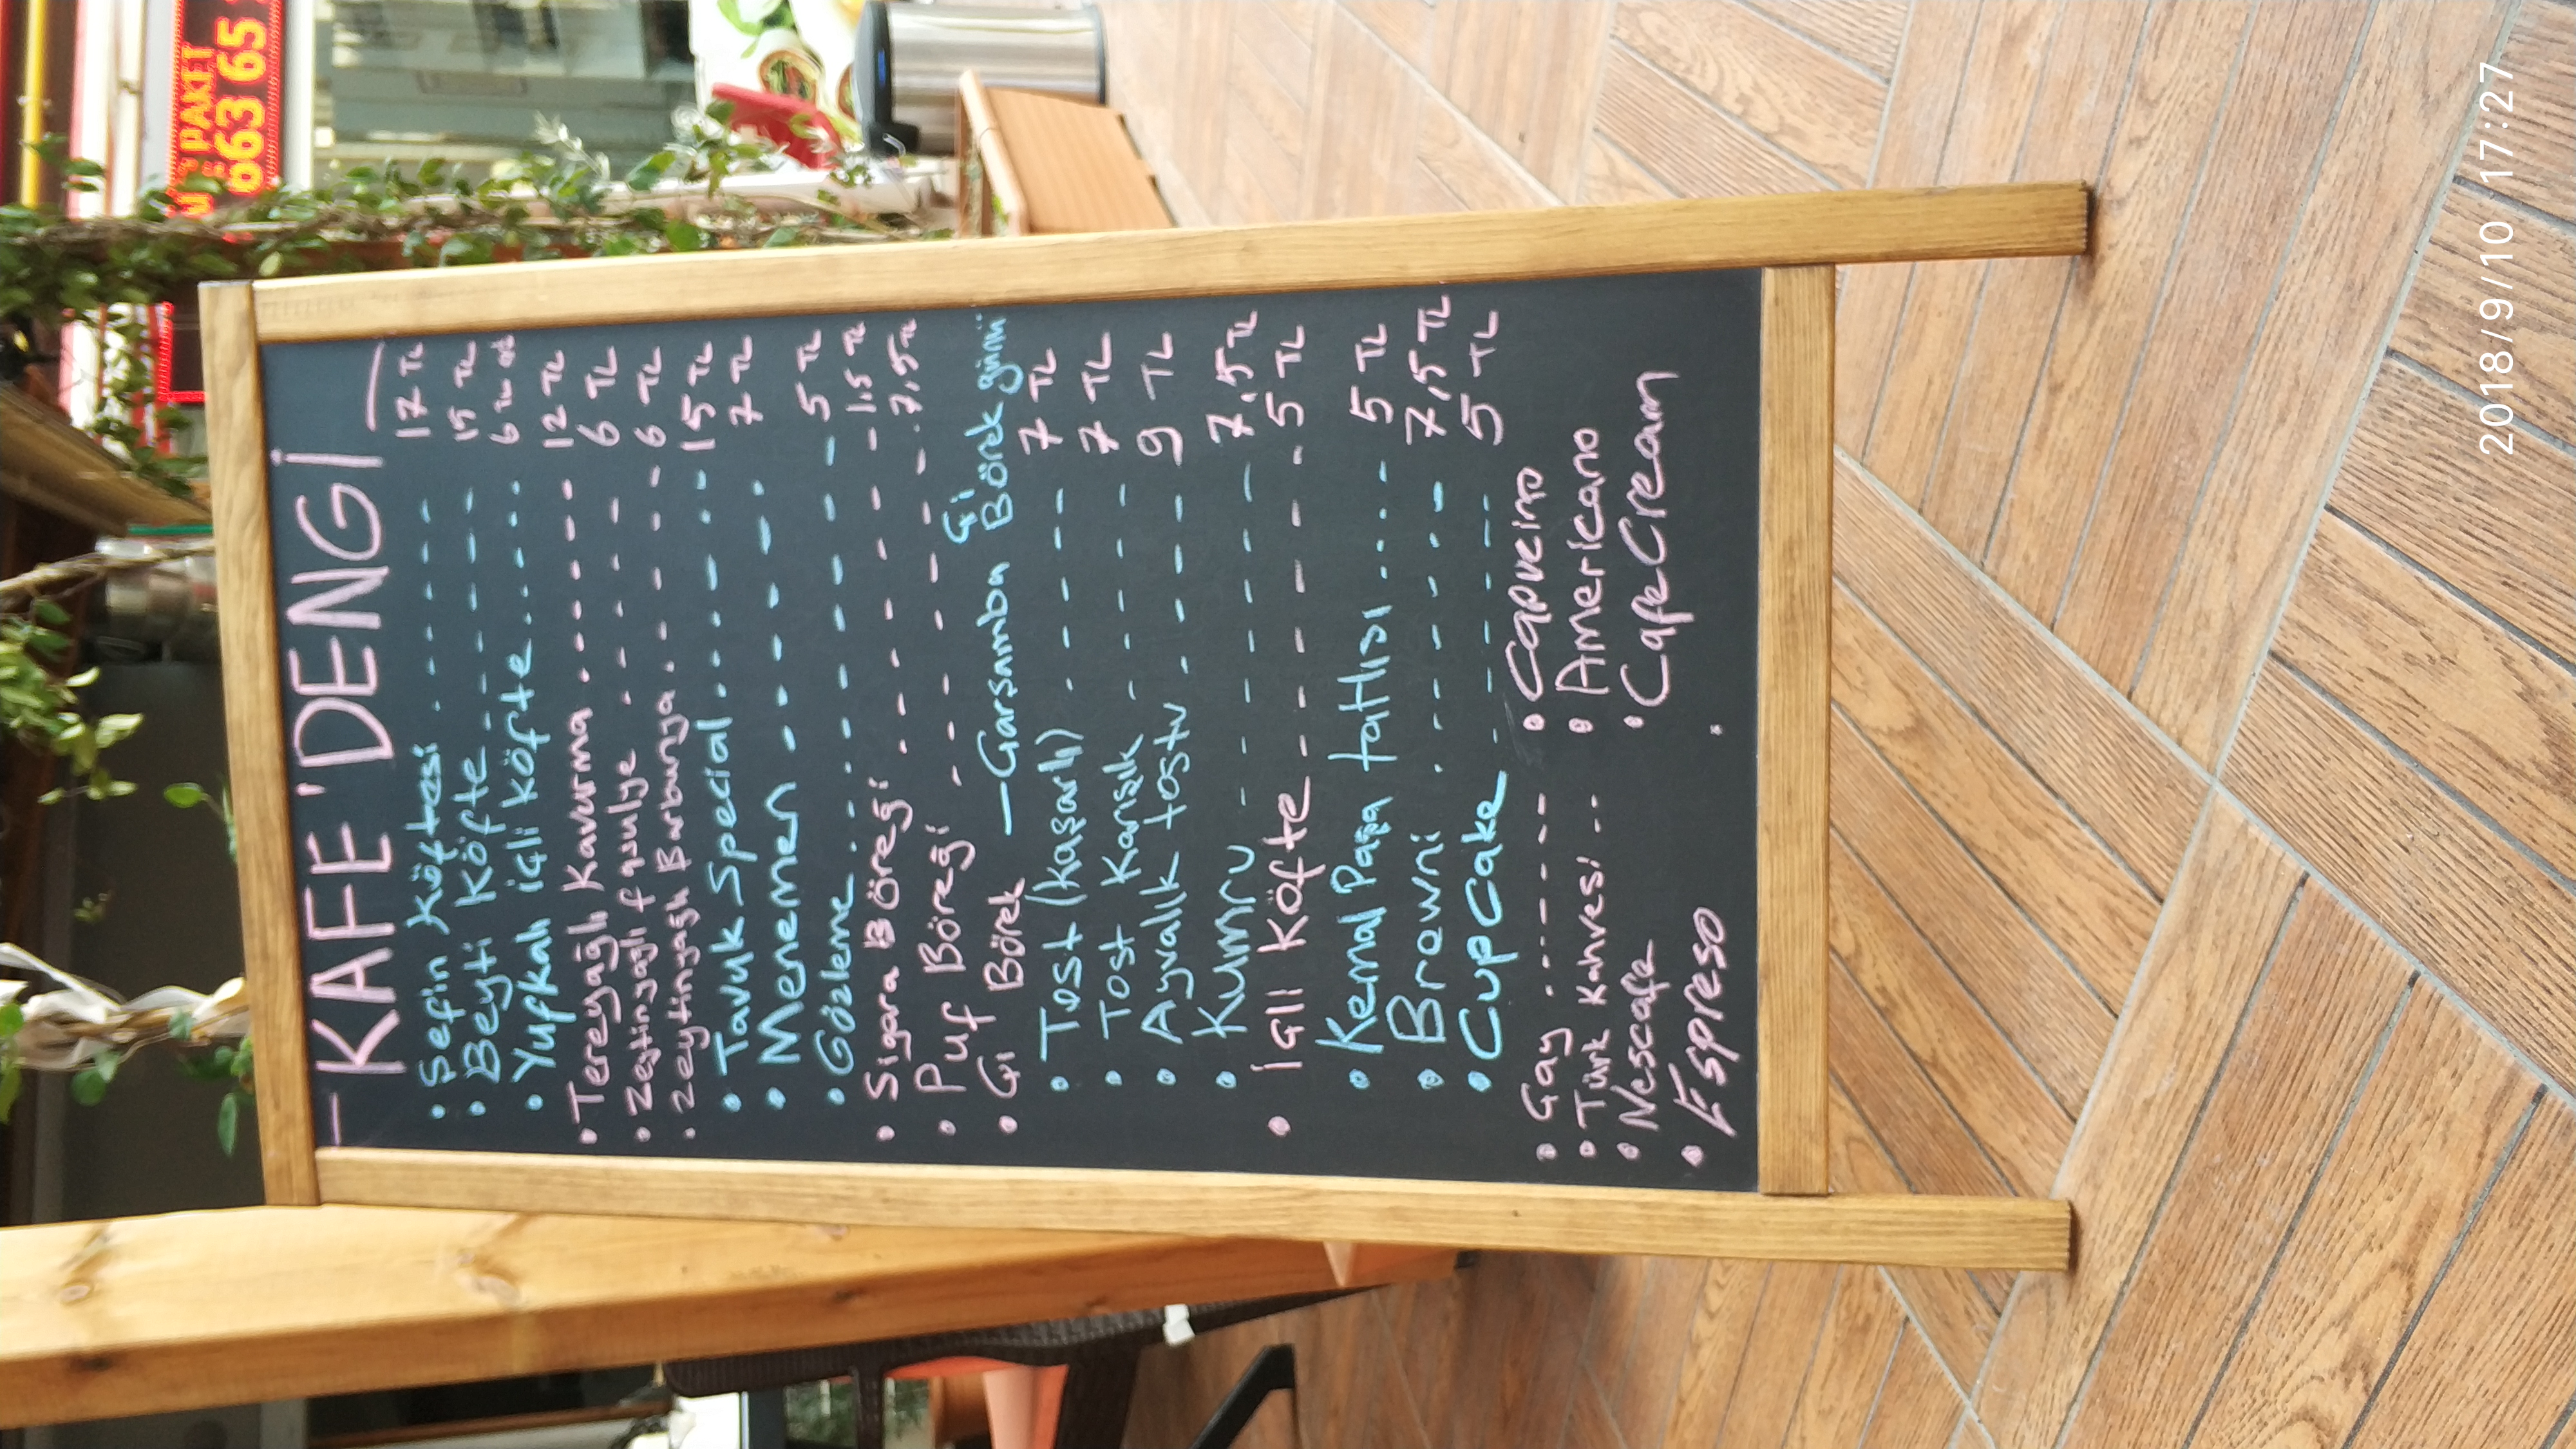 - KAFE'DENGİ -
• Şefin Köftesi ........ 17 TL
• Beyti Köfte ........ 15 TL
• Yufkalı içli köfte ........ 6 TL ad
• Tereyağlı Kavurma ........ 12 TL
• Zeytinyağlı fasulye ........ 6 TL
• Zeytinyağlı Barbunya ........ 6 TL
• Tavuk Special ........ 15 TL
• Menemen ........ 7 TL
• Gözleme ........ 5 TL
• Sigara Böreği ........ 1,5 TL
• Puf Böreği ........ 7,5 TL
• Çi Börek — Çarşamba Çi Börek günü
• Tost (kaşarlı) ........ 7 TL
• Tost Karışık ........ 7 TL
• Ayvalık tostu ........ 9 TL
• Kumru ........ 7,5 TL
• İçli Köfte ........ 5 TL
• Kemal Paşa tatlısı ........ 5 TL
• Brewni ........ 7,5 TL
• Cupcake ........ 5 TL
• Çay ........ • Cappucino
• Türk Kahvesi ... • Americano
• Nescafe • CafeCream
• Espreso
PAKET
663 65
2018/9/10 17:27